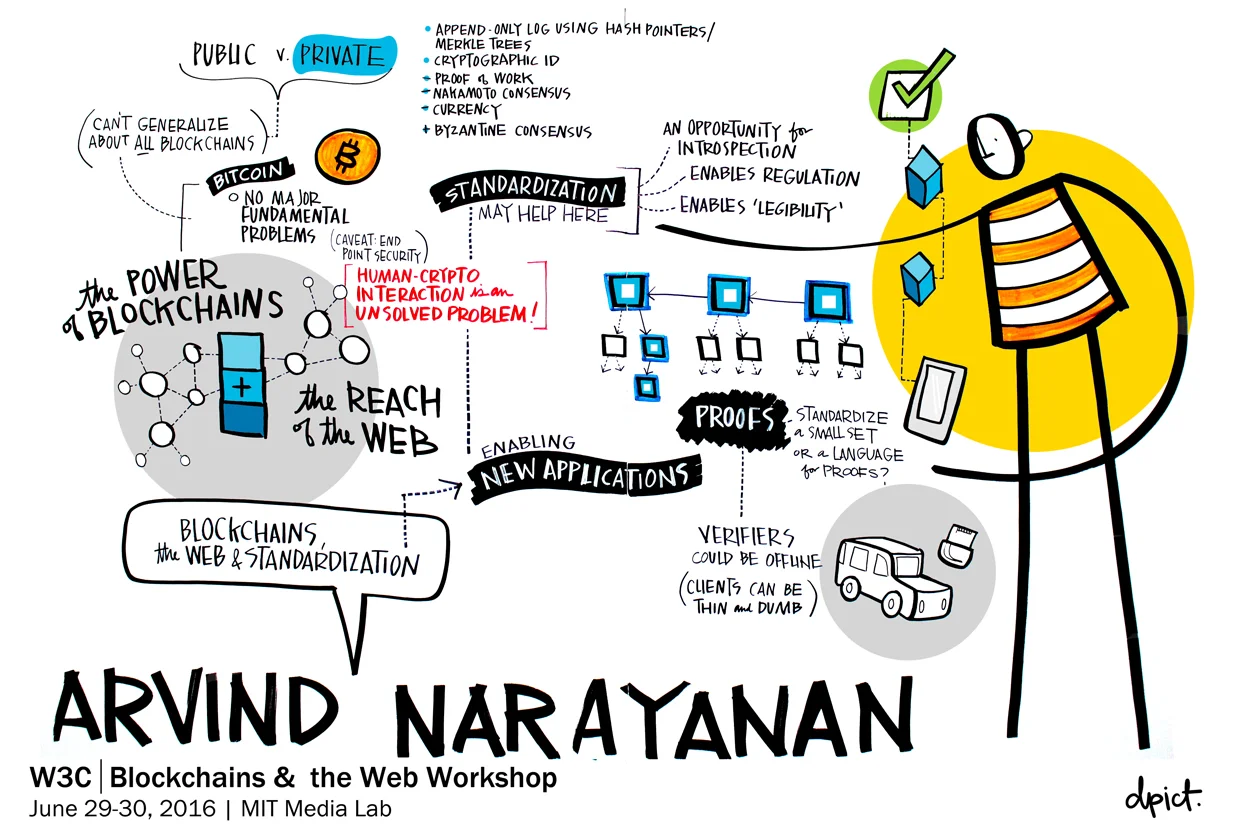 PUBLIC v. PRIVATE
• APPEND-ONLY LOG USING HASH POINTERS/
MERKLE TREES
• CRYPTOGRAPHIC ID
- PROOF of WORK
- NAKAMOTO CONSENSUS
- CURRENCY
+ BYZANTINE CONSENSUS
(CAN'T GENERALIZE
ABOUT ALL BLOCKCHAINS)
BITCOIN
B
○ NO MAJOR
FUNDAMENTAL
PROBLEMS
(CAVEAT: END
POINT SECURITY)
[HUMAN-CRYPTO
INTERACTION is an
UNSOLVED PROBLEM!]
STANDARDIZATION
MAY HELP HERE
AN OPPORTUNITY for
INTROSPECTION
ENABLES REGULATION
ENABLES 'LEGIBILITY'
the POWER
of BLOCKCHAINS
+
the REACH
of the WEB
ENABLING
NEW APPLICATIONS
PROOFS
STANDARDIZE
a SMALL SET
OR a LANGUAGE
for PROOFS?
VERIFIERS
COULD BE OFFLINE
(CLIENTS CAN BE
THIN and DUMB)
BLOCKCHAINS,
the WEB & STANDARDIZATION
ARVIND NARAYANAN
W3C | Blockchains & the Web Workshop
June 29-30, 2016 | MIT Media Lab
dpict.